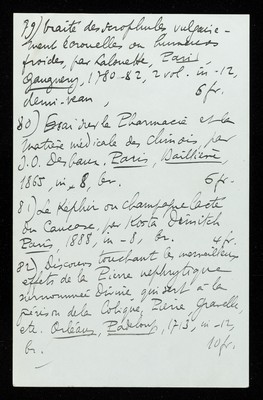 79) traité des scrophules vulgaire-
ment écrouelles ou humeurs
froides, par Lalouette, Paris,
Gauguery, 1780-82, 2 vol. in-12,
demi-veau, 6 fr.
80) Essai sur la Pharmacie et la
matière médicale des chinois, par
J.O. Debeaux. Paris, Baillière,
1865, in-8, br. 6 fr.
81) Le Kephir ou champagne lacté
du Caucase, par Kosta Dinitch
Paris, 1888, in-8, br. 4 fr.
82) Discours touchant les merveilleux
effets de la Pierre nephrytique
surnommée Divine, qui sert à la
guérison de la Colique, Pierre, Gravelle,
etc. Orléans, Padeloup, 1713, in-12,
br. 10 fr.